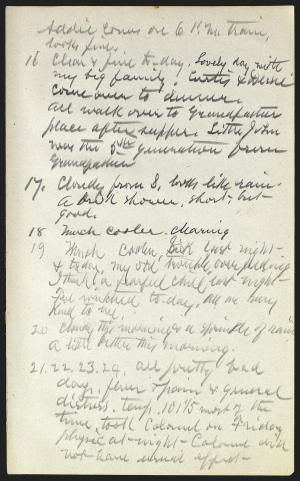 Addie comes on 6 P.M. train,
looks fine.
16 Clear & fine to-day. Lovely day with
my big family, Curtis & Bessie
come over to dinner
all walk over to Grandfathers
place after supper. Little John
was the 5th generation from
Grandfather
17. Cloudy from S, looks like rain -
a brisk shower, short - but
good.
18 Much cooler - clearing
19 Much cooler, Sick last night -
& to-day, my old trouble over
I think, a fearful chill last night -
to-day, all are very
kind to me,
20 cloudy this morning & a sprinkle of rain
a little better this morning.
21, 22, 23, 24, all pretty bad
days, fever & pain & general
distress, temp. 101½ most of the
time, took Calomel on Friday
physic at - night - Calomel did
not have usual effect -